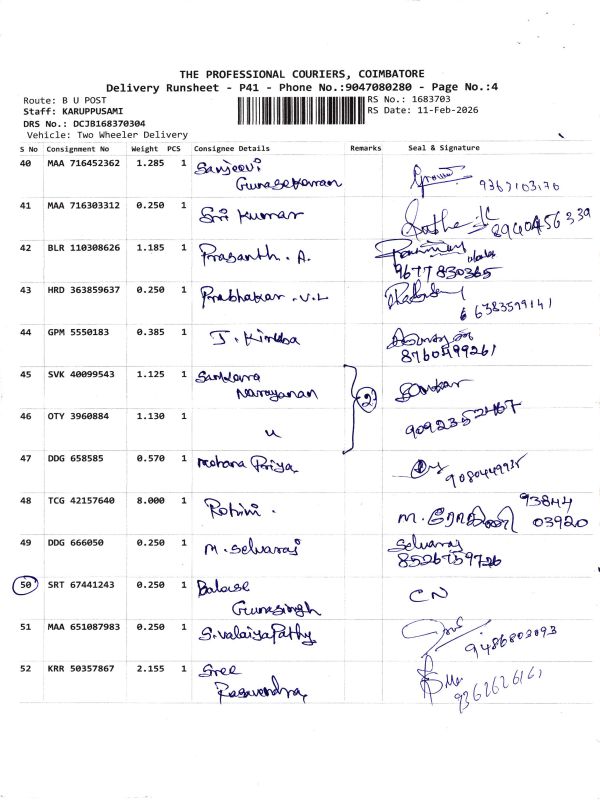 THE PROFESSIONAL COURIERS, COIMBATORE
Delivery Runsheet - P41 - Phone No.:9047080280 - Page No.:4
Route: B U POST
RS No.: 1683703
Staff: KARUPPUSAMI
RS Date: 11-Feb-2026
DRS No.: DCJB168370304
Vehicle: Two Wheeler Delivery
S No Consignment No Weight PCS Consignee Details Remarks Seal & Signature
40 MAA 716452362 1.285 1 Sanjeevi
Gunasekaran
41 MAA 716303312 0.250 1 Sri Kumar 8940456339
42 BLR 110308626 1.185 1 Prasanth . A.
9677830365
43 HRD 363859637 0.250 1 Prabhakar . V. L
6383599141
44 GPM 5550183 0.385 1 J. Kiruba
8760499261
45 SVK 40099543 1.125 1 Sankara
Narayanan
2
46 OTY 3960884 1.130 1 u 9092352467
47 DDG 658585 0.570 1 Mohana Priya
48 TCG 42157640 8.000 1 Rohini . M. ரோகிணி 93844
03920
49 DDG 666050 0.250 1 M. Selvaraj Selvaraj
8526759726
50 SRT 67441243 0.250 1 Balase
Gunasingh
CN
51 MAA 651087983 0.250 1 S. Valaiyapathy
9486802093
52 KRR 50357867 2.155 1 Sree
Ragavendra